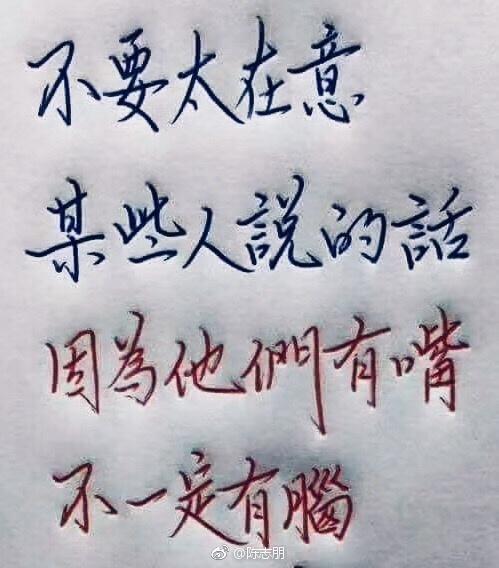 不要太在意
某些人說的話
因為他們有嘴
不一定有腦
@陈志朋